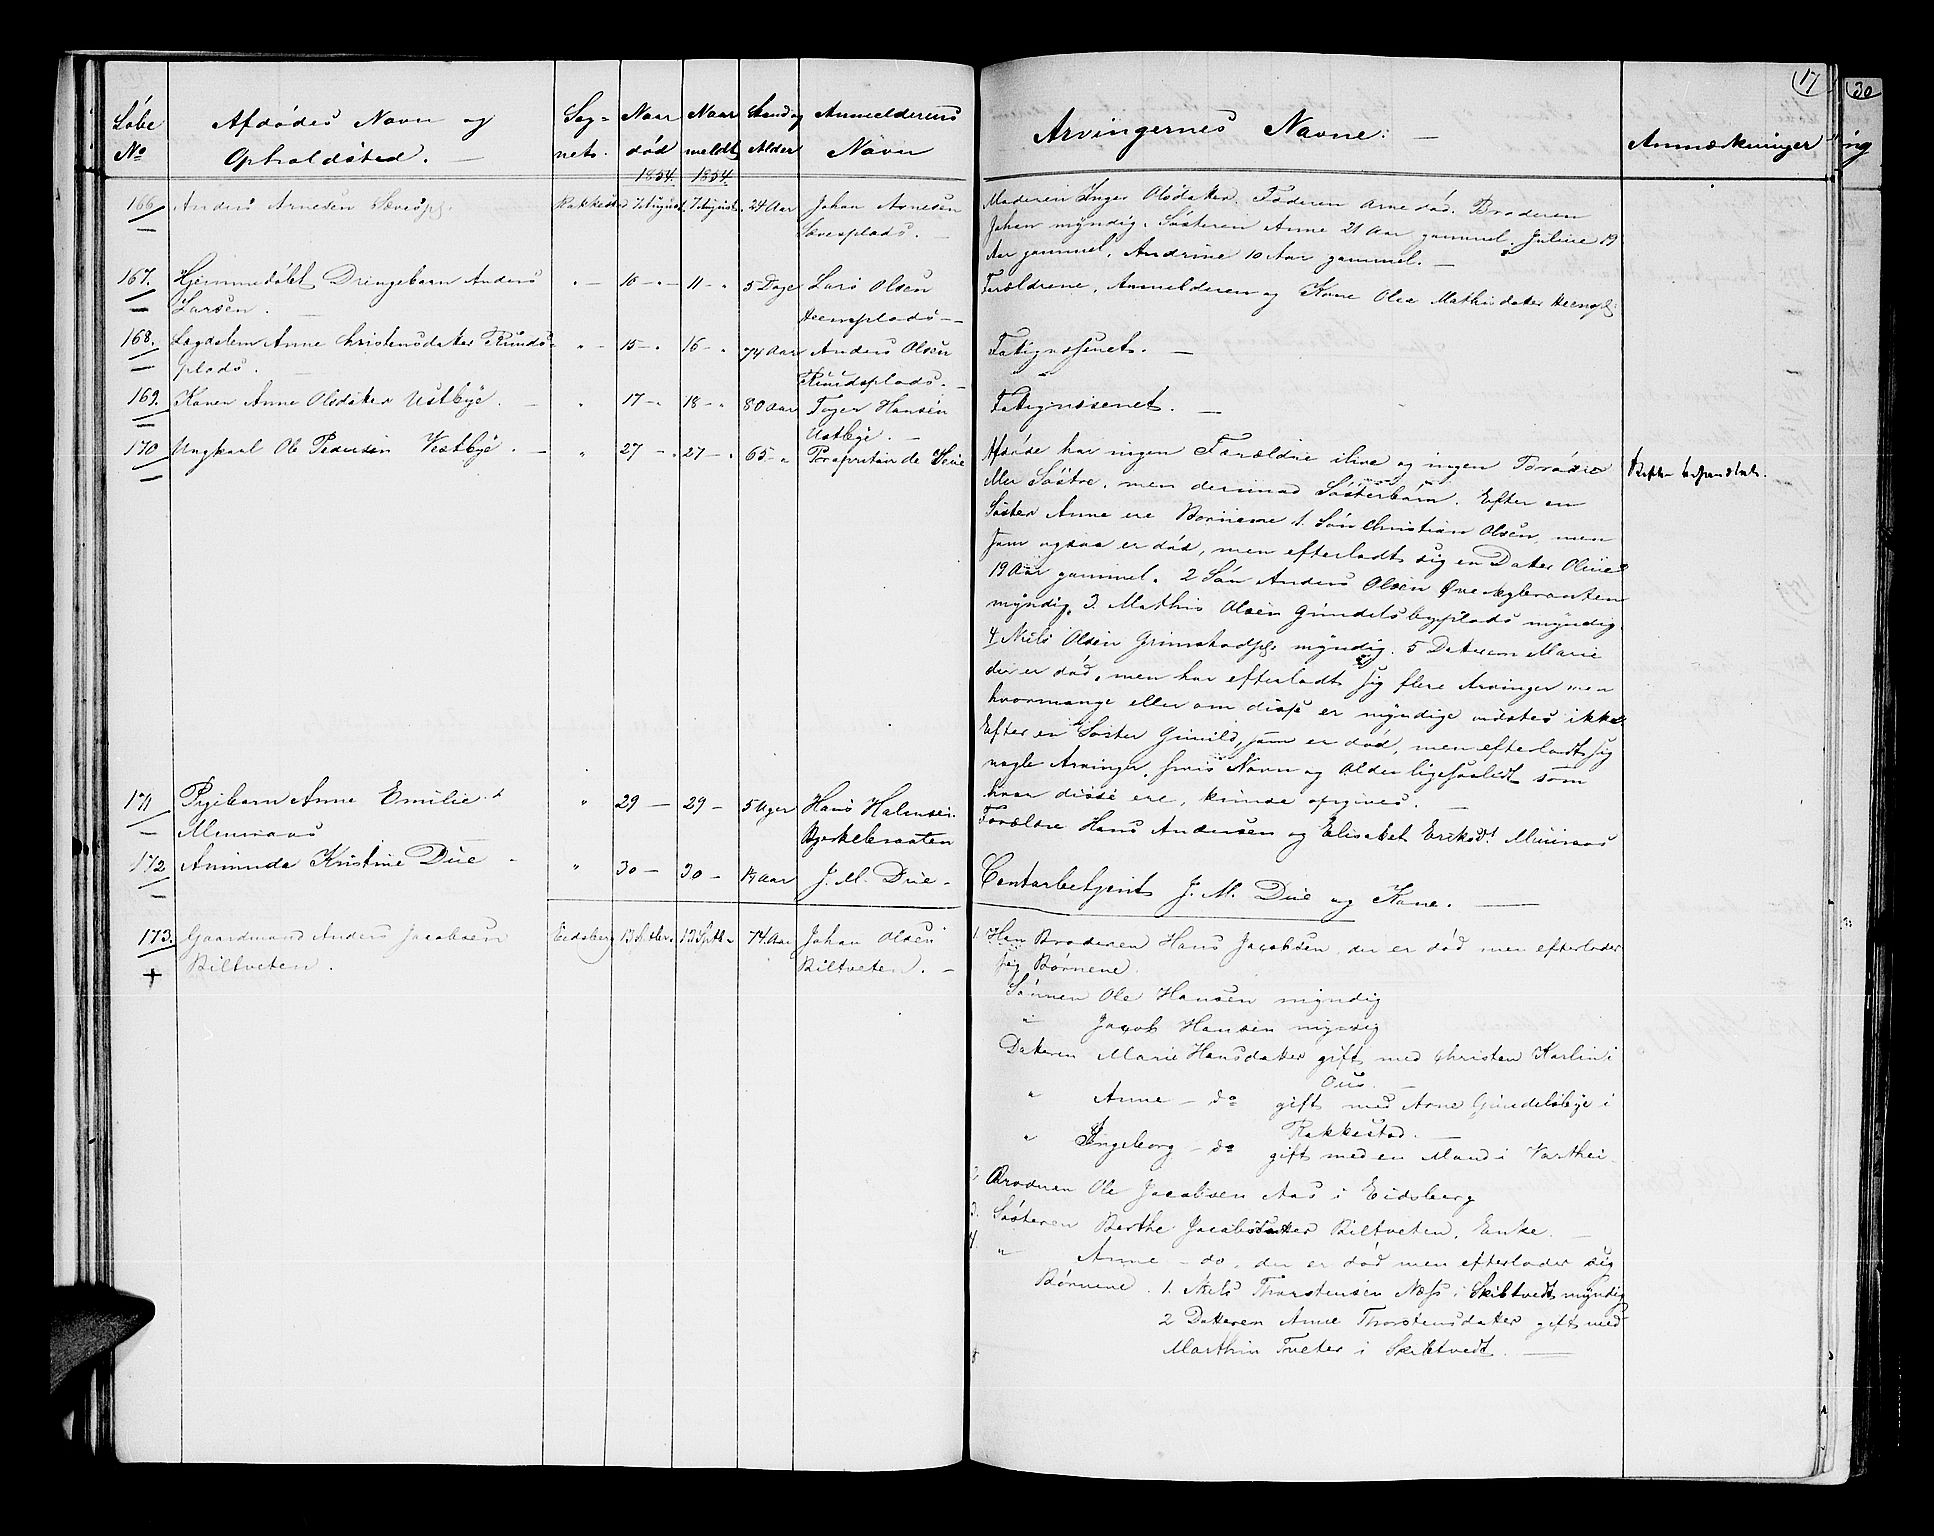 17
30
Løbe No
Afdødes Navn og Opholdsted.
Sognets.
Naar død
Naar meldt
Stand og Alder
Anmelderens Navn
Arvingernes Navne:
Anmærkninger
1854. 1854.
166 Anders Arnesen Sævespl. Rakkestad 7 August 7 August 24 Aar Johan Arnesen
Sævesplads.
Moderen Inger Olsdater. Faderen Arne død. Broderen
Johan myndig. Søsteren Anne 21 Aar gammel. Juline 19
Aar gammel, Andrine 10 Aar gammel.
167. Hjemmedøbt Drengebarn Anders " 10 - " 11 - " 5 Dage Lars Olsen
Larsen.
Forældrene, Anmelderen og Kone Olea Mathisdater
168. Lægdslem Anne Christensdater " 15 - " 16 - " 74 Aar Anders Olsen
plads.
Fattigvæsenet.
169. Konen Anne Olsdater Ustbye. " 17 - " 18 - " 80 Aar Hansen
Ustbye.
Fattigvæsenet.
170 Ungkarl Ole Pedersen Vestbye. " 27 - " 27 - " 65 - " Proprietair de Seue
Afdøde har ingen Forældre ilive og ingen
eller Søstre, men derimod Søsterbørn. Efter en
Søster Anne ere Børnene 1. Søn Christian Olsen, men
som ogsaa er død, men efterladt sig en Dater Oline
19 Aar gammel. 2 Søn Anders Olsen
myndig. 3. Mathis Olsen Gundelsbyplads myndig.
4 Niels Olsen Grimstadpl. myndig. 5 Dateren Marie
der er død, men har efterladt sig flere Arvinger men
hvormange eller om disse er myndige vidstes ikke
Efter en Søster Gunild, som er død, men efterladt sig
nogle Arvinger, hvis Navn og Alder ligesaalidt som
hvor disse ere, kunde opgives.
171 Pigebarn Anne Emilie " 29 - 29 - 5 Uger Hans
Bjerkebraaten
Forældre Hans Andersen og Elisabet Eriksdt.
172 Aminda Kristine Due " 30 - 30 - Aar J. M. Due
J. M. Due og Kone.
173. Gaardmand Anders Jacobsen Eidsberg 13 Septbr. 13 Septb. 74 Aar Johan Olsen
Biltveten.
Biltveten.
1. Broderen Hans Jacobsen, der er død men efterlader
sig Børnene.
Sønnen Ole Hansen myndig
" Jacob Hansen myndig
Dateren Marie Hansdater gift med Christen i
" Anne - do gift med Arne Gundelsbye i
Rakkestad.
" Ingeborg - do gift med en Mand i
2. Broderen Ole Jacobsen Aas i Eidsberg
3. Søsteren Berthe Jacobsdatter Biltveten, Enke.
4. " Anne - do, der er død men efterlader sig
Børnene. 1. Niels Thorstensen Næss i Skibtvedt myndig
2 Datteren Anne Thorstensdater gift med
Marthin Tveter i Skibtvedt.